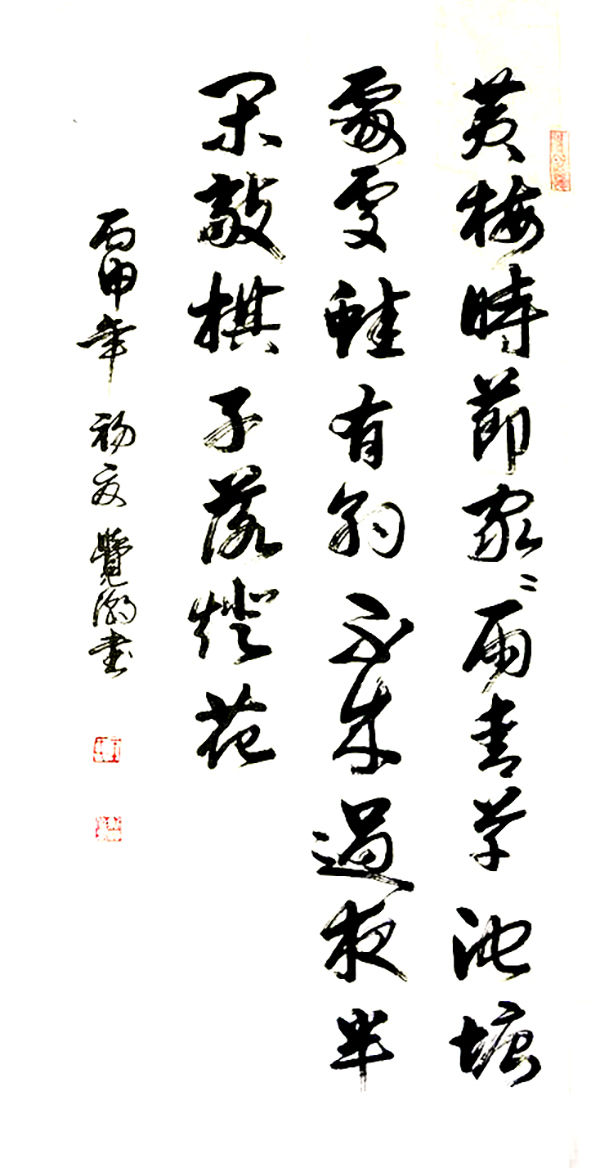 黄梅時節家〻雨青草池塘
處處蛙有約不來過夜半
閑敲棋子落燈花
丙申年 初夏 覺書